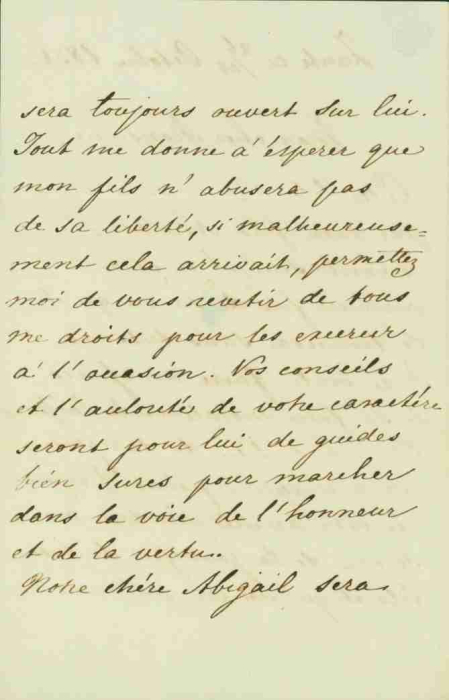 sera toujours ouvert sur lui.
Tout me donne à éspérer que
mon fils n'abusera pas
de sa liberté, si malheureuse-
ment cela arrivait, permettez
moi de vous revetir de tous
me droits pour les exercer
à l'occasion. Vos conseils
et l'autorité de votre caractère
seront pour lui de guides
bién sures pour marcher
dans la voie de l'honneur
et de la vertu..
Notre chére Abigail sera